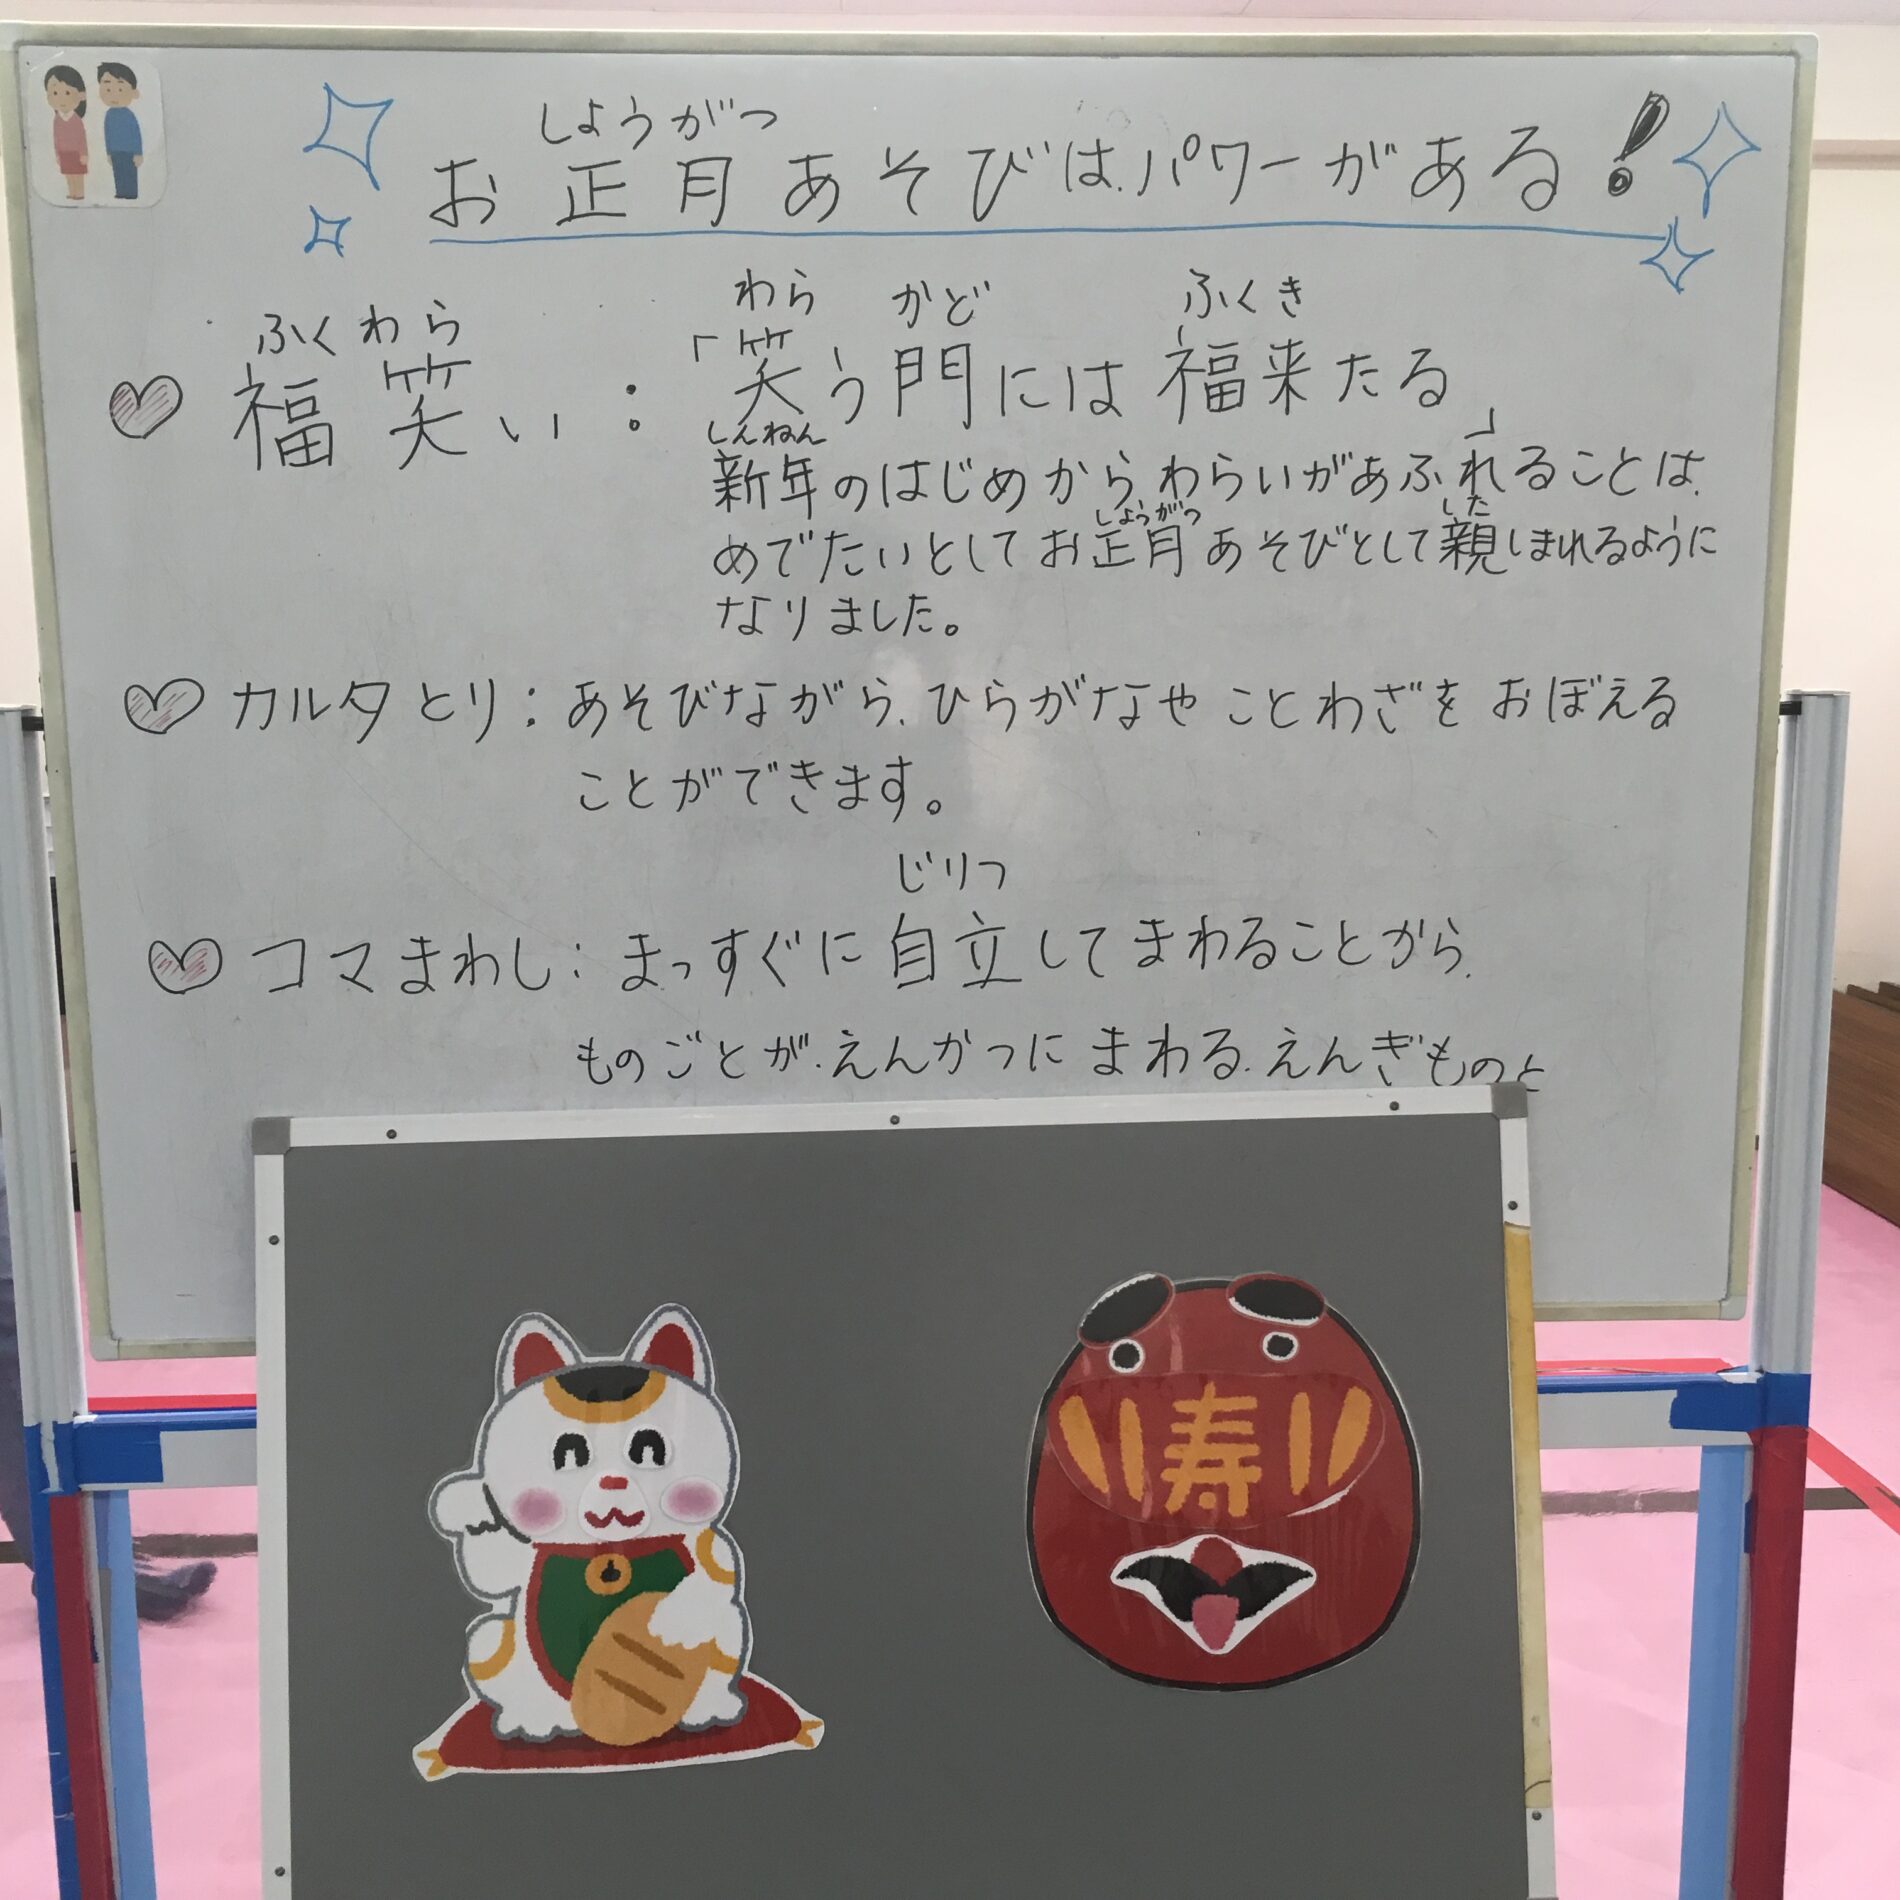 しょうがつ
お正月あそびは、パワーがある!
ふくわら
福笑い:
わら かど ふくき
「笑う門には福来たる」
しんねん
新年のはじめから、わらいがあふれることは、
しょうがつ した
めでたいとしてお正月あそびとして親しまれるように
なりました。
カルタとり:あそびながら、ひらがなやことわざをおぼえる
ことができます。
じりつ
コマまわし:まっすぐに自立してまわることから、
ものごとが、えんかつにまわる、えんぎものと
寿